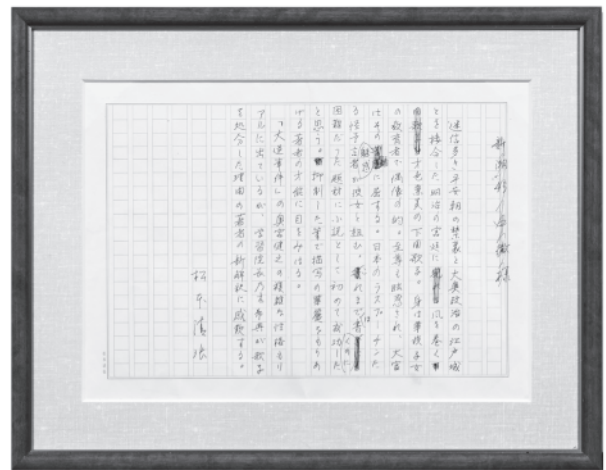 迷信多き平安朝の禁裏と大奥政治の江戸城
とを接合した明治の宮廷に風を巻く
才色兼美の下田歌子。身は華族子女
の教育者で偶像の的。至尊も眩惑され、大官
はその魅惑に屈する。日本のラスプーチンた
る怪予言者が彼女と組む。これまで書くのは
困難だった題材に小説として初めて成功した
と思う。抑制した筆で描写の華麗をもりあ
げる著者の才能に目をみはる。
「大逆事件」の奥宮健之の複雑な性格もリ
アルに出ているが、学習院長乃木希典が歌子
を処分した理由の著者の新解釈に感歎する。
松本清張